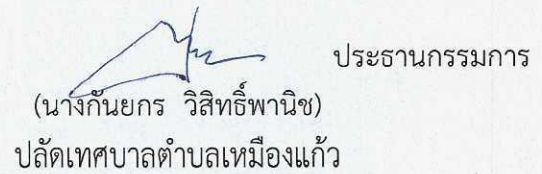 ประธานกรรมการ
(นางกันยกร วิสิทธิ์พานิช)
ปลัดเทศบาลตำบลเหมืองแก้ว